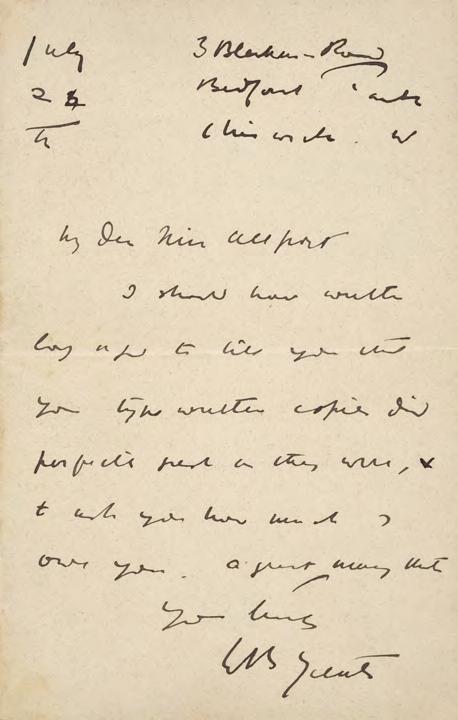 July 3 Blenheim Road
22 Bedford Park
th Chiswick. W
My Dear Miss Allport
I should have written
long ago to tell you that
your type written copies did
perfectly just as they were, &
to ask you how much I
owe you. a great many thanks
Yours truly
WB Yeats